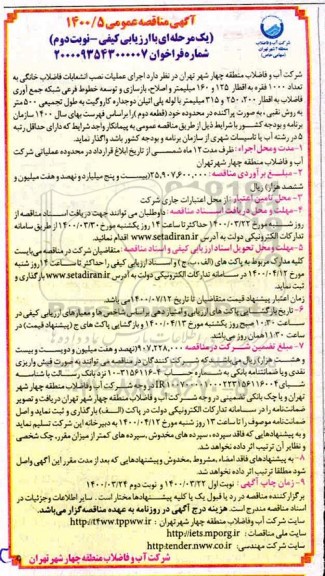 آگهی مناقصه عمومی ۱۴۰۰/۵
(یک مرحله‌ای با ارزیابی کیفی - نوبت دوم)
شماره فراخوان ۲۰۰۰۰۹۳۵۴۳۰۰۰۰۰۷
شرکت آب و فاضلاب
منطقه ۴ شهر تهران
شرکت آب و فاضلاب منطقه چهار شهر تهران در نظر دارد اجرای عملیات نصب انشعابات فاضلاب خانگی به
تعداد ۱۰۰۰ فقره به اقطار ۱۲۵ و ۱۶۰ میلیمتر و اصلاح، بازسازی و توسعه خطوط فرعی شبکه جمع آوری
فاضلاب به اقطار ۲۰۰، ۲۵۰ و ۳۱۵ میلیمتر با لوله پلی اتیلن دوجداره کاروگیت به طول تجمیعی ۵۰۰ متر
به روش نقبی، به صورت پراکنده در محدوده خود (قطعه دوم) را بر اساس فهرست بهای سال ۱۴۰۰ سازمان
برنامه و بودجه کشور با شرایط ذیل از طریق مناقصه عمومی به پیمانکار واجد شرایط که دارای حداقل رتبه
۵ در رشته آب یا تاسیسات شهری از سازمان برنامه و بودجه کشور باشد واگذار نماید.
۱- مدت و محل اجرا: ظرف مدت ۱۲ ماه شمسی از تاریخ ابلاغ قرارداد در محدوده عملیاتی شرکت
آب و فاضلاب منطقه چهار شهر تهران
۲- مبلغ بر آوردی مناقصه: ۲۵,۹۰۷,۶۰۰,۰۰۰ (بیست و پنج میلیارد و نهصد و هفت میلیون و
ششصد هزار) ریال
۳- محل تامین اعتبار: از محل اعتبارات جاری شرکت
۴- مهلت و محل دریافت اسناد مناقصه: داوطلبان می توانند جهت دریافت اسناد مناقصه از
روز شنبه مورخ ۱۴۰۰/۰۳/۲۲ حداکثر تا ساعت ۱۴ روز یکشنبه مورخ ۱۴۰۰/۰۳/۳۰ از طریق سامانه
تدارکات الکترونیکی دولت به آدرس www.setadiran.ir اقدام نمایند.
۵- مهلت و محل تحویل اسناد ارزیابی کیفی و اسناد مناقصه: متقاضیان شرکت در مناقصه می‌بایست
کلیه مدارک مربوط به پاکت های (الف، ب، ج) و اسناد ارزیابی کیفی را حداکثر تا ساعت ۱۴ روز شنبه
مورخ ۱۴۰۰/۰۴/۱۲ در سامانه تدارکات الکترونیکی دولت به آدرس www.setadiran.ir بارگذاری و
ثبت نماید.
زمان اعتبار پیشنهاد قیمت متقاضیان تا تاریخ ۱۴۰۰/۰۷/۱۲ می باشد.
۶- تاریخ بازگشایی پاکت های ارزیابی و امتیاز دهی بر اساس شاخص ها و معیارهای ارزیابی کیفی در
ساعت ۱۰:۳۰ صبح روز یکشنبه مورخ ۱۴۰۰/۰۴/۱۳ و بازگشایی پاکت های ج (پیشنهاد قیمت) در
ساعت ۱۱:۳۰ همان روز می‌باشد.
۷- مبلغ تضمین شرکت در مناقصه: ۹۰۷,۲۲۸,۰۰۰ (نهصد و هفت میلیون و دویست و بیست
و هشت هزار) ریال می‌باشد که شرکت کنندگان در مناقصه می توانند به صورت فیش واریزی
تهران و یا چک بانکی تضمینی در وجه شرکت آب و فاضلاب منطقه چهار شهر تهران دریافت و تصویر
ضمانتنامه را در سامانه تدارکات الکترونیکی دولت در پاکت (الف) بارگذاری و ثبت نماید و اصل
ضمانت‌نامه موصوف را تا ساعت ۱۳ روز شنبه مورخ ۱۴۰۰/۰۴/۱۲ به دبیرخانه این شرکت تسلیم نماید
و به پیشنهادهایی که فاقد سپرده، سپرده های مخدوش، سپرده‌های کمتر از میزان مقرر، چک شخصی
و نظایر آن ترتیب اثر داده نخواهد شد.
۸- به پیشنهادهای فاقد امضاء، مشروط، مخدوش و پیشنهادهایی که بعد از مدت مقرر این آگهی واصل
شود مطلقا ترتیب اثر داده نخواهد شد.
۹- زمان چاپ آگهی: نوبت اول ۱۴۰۰/۰۳/۲۲ و نوبت دوم ۱۴۰۰/۰۳/۲۴
برگزار کننده مناقصه در رد یا قبول یک یا کلیه پیشنهادها مختار است. سایر اطلاعات و جزئیات در
اسناد مناقصه مندرج است. هزینه درج آگهی در روزنامه به عهده مناقصه گزار می‌باشد.
سایت شرکت آب و فاضلاب منطقه چهار شهر تهران: http://tfww.tppww.ir
سایت ملی مناقصات: http://iets.mporg.ir
سایت شرکت مهندسی: http:tender.nww.co.ir
شرکت آب و فاضلاب منطقه چهار شهر تهران